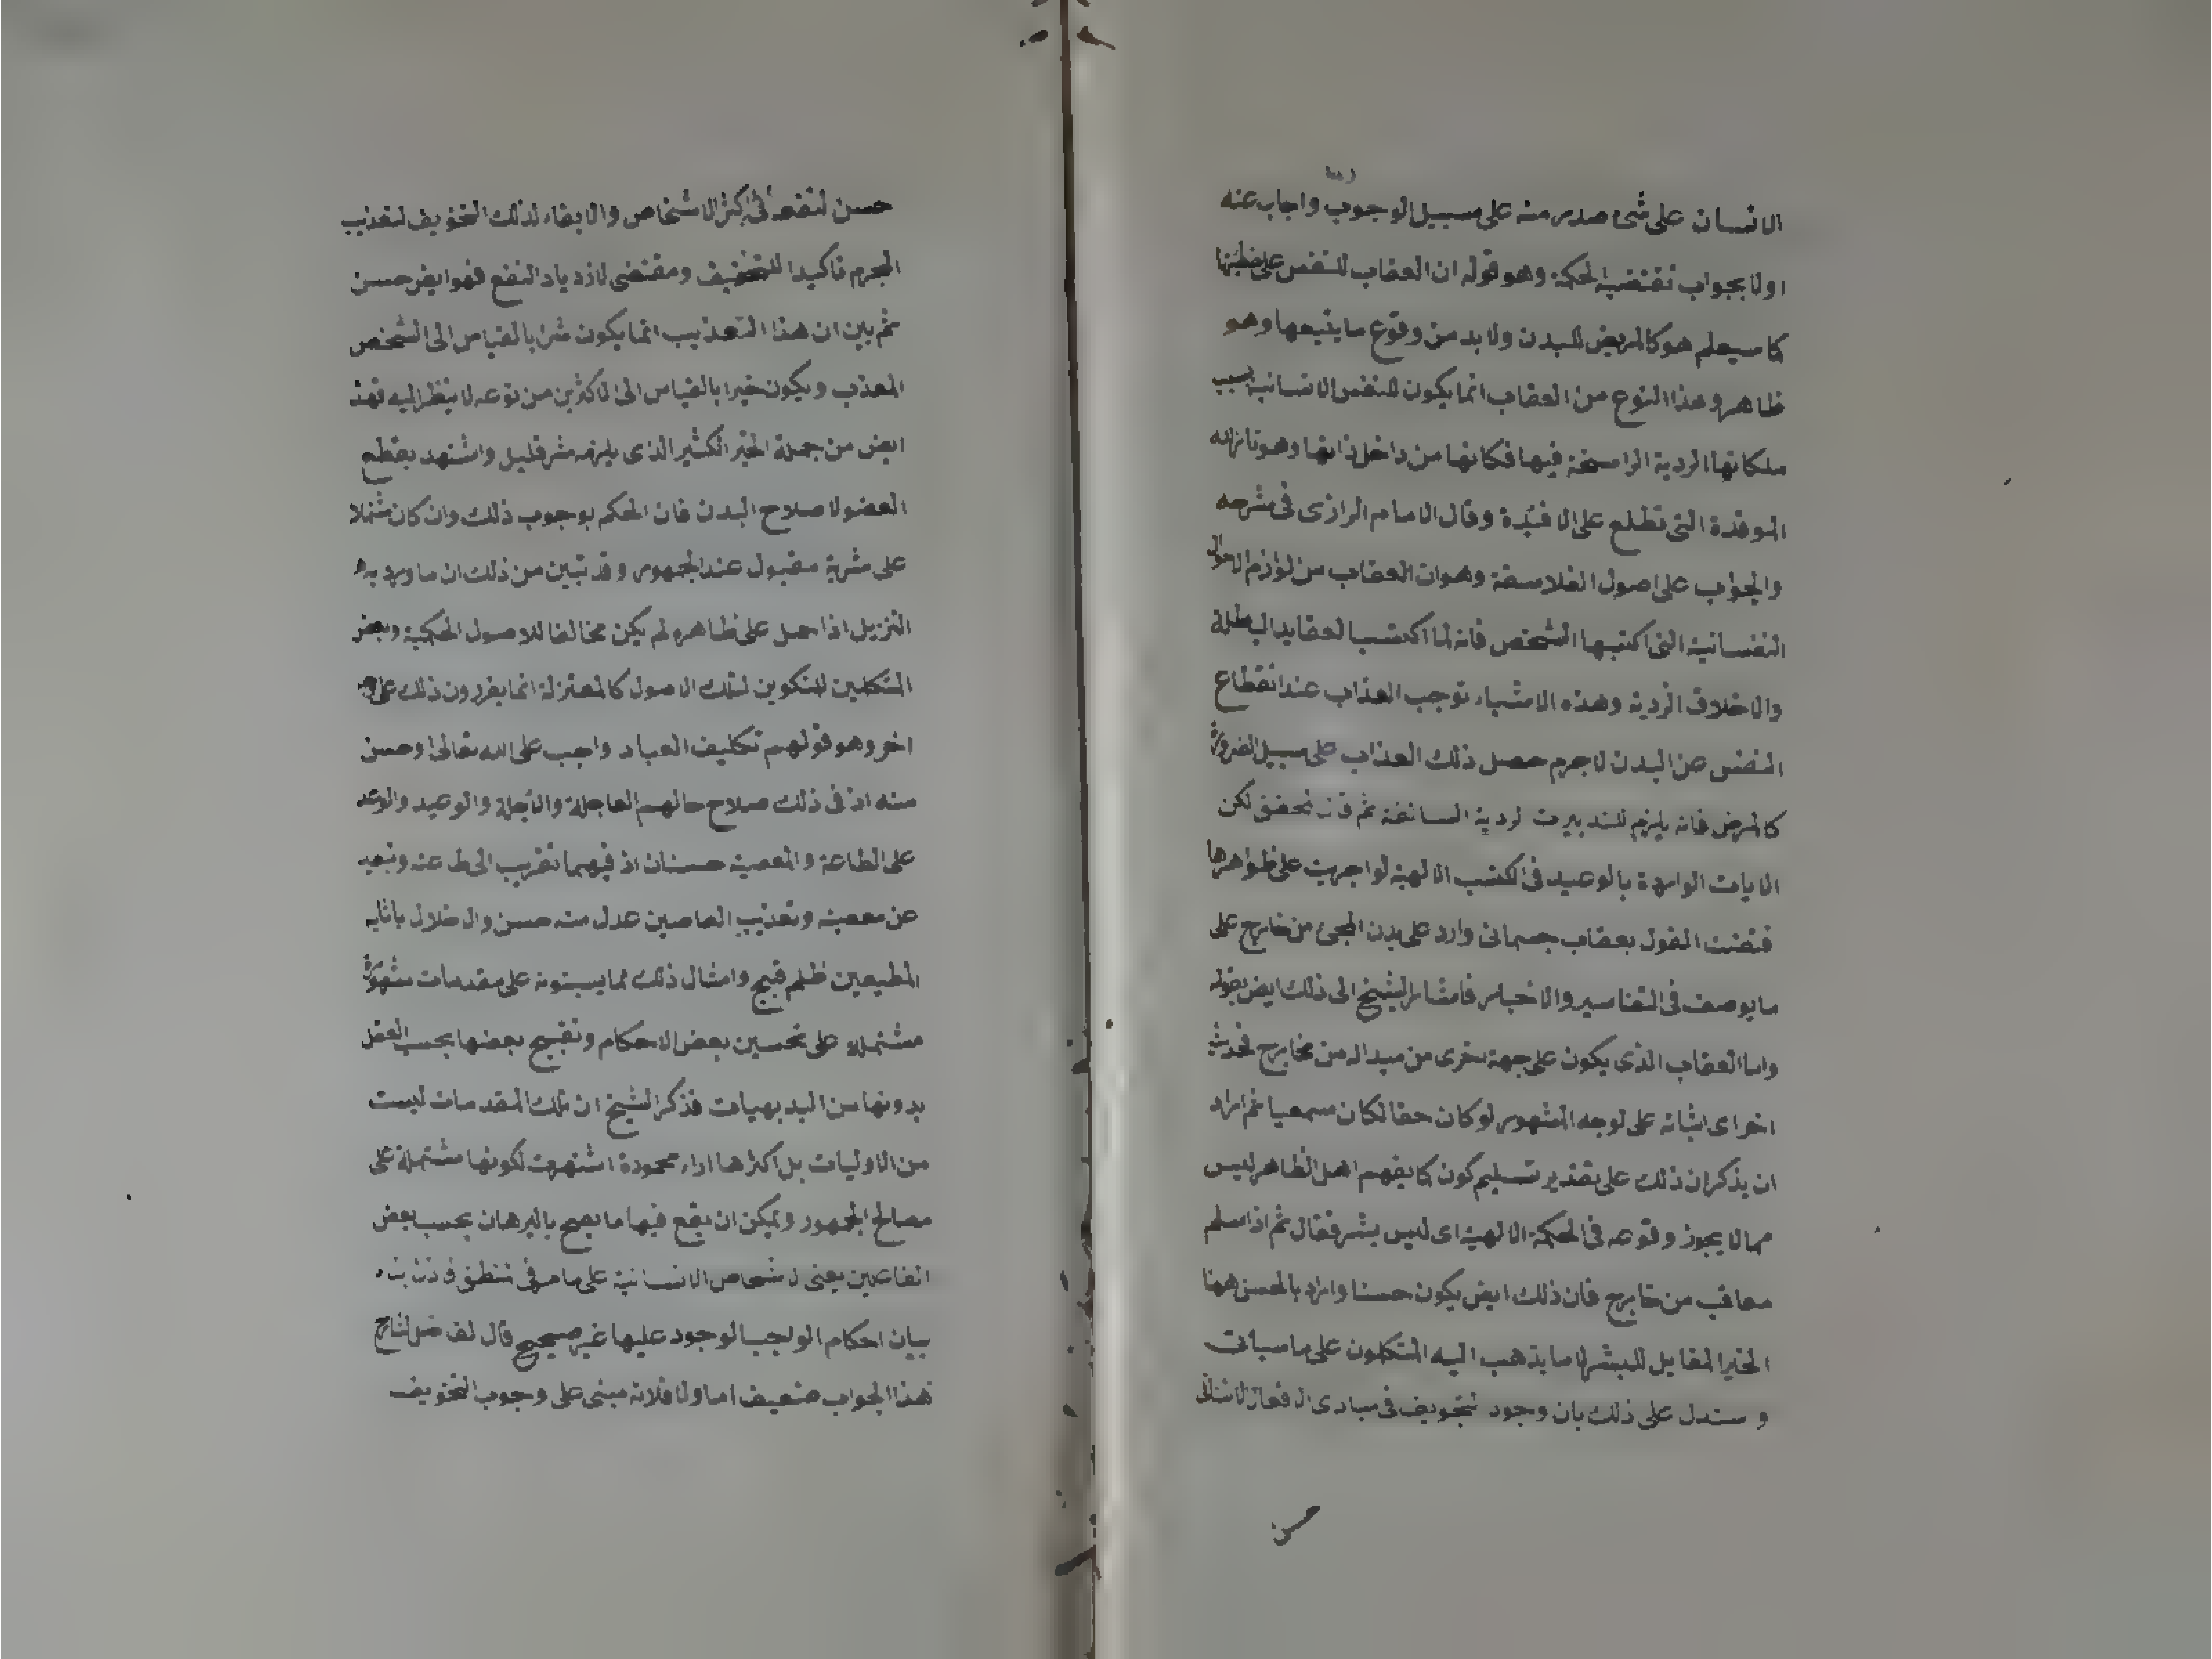 الانسان على شئ صدر منه على سبيل الوجوب واجاب عنه
اولا بجواب تقتضيه الحكمة وهو قوله ان العقاب للنفس على خطيئتها
كما سيعلم هو كالمرض للبدن ولا بد من وقوع ما يتبعها وهو
ظاهر وهذا النوع من العقاب انما يكون للنفس الانسانية بسبب
ملكاتها الردية الراسخة فيها فكانها من داخل ذاتها وهو نار الله
الموقدة التي تطلع على الافئدة وقال الامام الرازى فى شرحه
والجواب على اصول الفلاسفة وهو ان العقاب من لوازم الاحوال
النفسانية التى اكتبها الشخص فانه لما اكتسب العقايد الباطلة
والاخلاق الردية وهذه الاشياء توجب العذاب عند انقطاع
النفس عن البدن لاجرم حصل ذلك العذاب على سبيل الضرورة
كالمرض فانه يلزم للتدبيرت لردية السابقة ثم قال نحقق لكن
الايات الواردة بالوعيد فى الكتب الالهية لو اجريت على ظواهرها
فتضت القول بعقاب جسمانى وارد على بدن المجئ من خارج على
ما يوصف فى التفاسير والاخبار فاشار الشيخ الى ذلك ايض بقوله
واما العقاب الذى يكون على جهة اخرى من مبدا له من خارج فحديث
اخر اى اثباته على لوجه المشهور لو كان حقا لكان سمعيا ثم اراد
ان يذكر ان ذلك على تقدير تسليم كون كما يفهم اهل الظاهر ليس
مما لا يجوز وقوعه فى الحكمة الالهية اى ليس بشر فقال ثم اذا سلم
معاقب من خارج فان ذلك ايض يكون حسنا واراد بالحسن ههنا
الخير المقابل للبشر لا ما يذهب اليه المتكلمون على ما سياتى
و ستدل على ذلك بان وجود لتخويف فى مبادى الافعال الانسانى
حسن
حسن لنفعه فى اكثر الاشخاص والايفاء لذلك التخويف لتعذيب
المجرم تاكيدا للتخويف ومقتضى لازدياد النفع فهو ايض حسن
ثم بين ان هذا التعذيب انما يكون شرا بالقياس الى الشخص
المعذب ويكون خيرا بالقياس الى الاكثرين من نوعه لا ينظر اليه فهذ
ايض من جملة الخير الكثير الذى يلزمه شر قليل واشتهد بقطع
العضو لاصلاح البدن فان الحكم بوجوب ذلك وان كان مشتملا
على شرية مقبول عند الجمهور وقد تبين من ذلك ان ما ورد به
التنزيل اذا حمل على ظاهره لم يكن مخالفا للاصول الحكمية وبعض
المتكلمين للنكوين لتلك الاصول كالمعتزلة انما يقررون ذلك على وجه
اخر وهو قولهم تكليف العباد واجب على الله تعالى او حسن
منه اذ فى ذلك صلاح حالهم العاجلة والآجلة والوعيد والوعد
على الطاعة والمعصية حسنان اذ فيهما تقريب الى ط عنه وتبعيد
عن معصيه وتعذيب العاصين عدل منه حسن والاخلال باثابه
المطيعين ظلم قبيح وامثال ذلك مما يبتنونه على مقدمات مشهورة
مشتملة على تحسين بعض الاحكام وتقبيح بعضها بحسب العقل
يدونها من البديهيات فذكر الشيخ ان تلك المقدمات ليست
من الاوليات بل اكثرها اراء محمودة اشتهرت لكونها مشتملة على
مصالح الجمهور ويمكن ان يقع فيها ما يصح بالبرهان بحسب بعض
الفاعلين يعنى لاشخاص الانسانية على ما مر فى لمنطق فاذن بناء
بيان احكام الواجب الوجود عليها غير صحيح قال لفاضل لشارح
هذا الجواب ضعيف اما اولا فلانه مبنى على وجوب التخويف